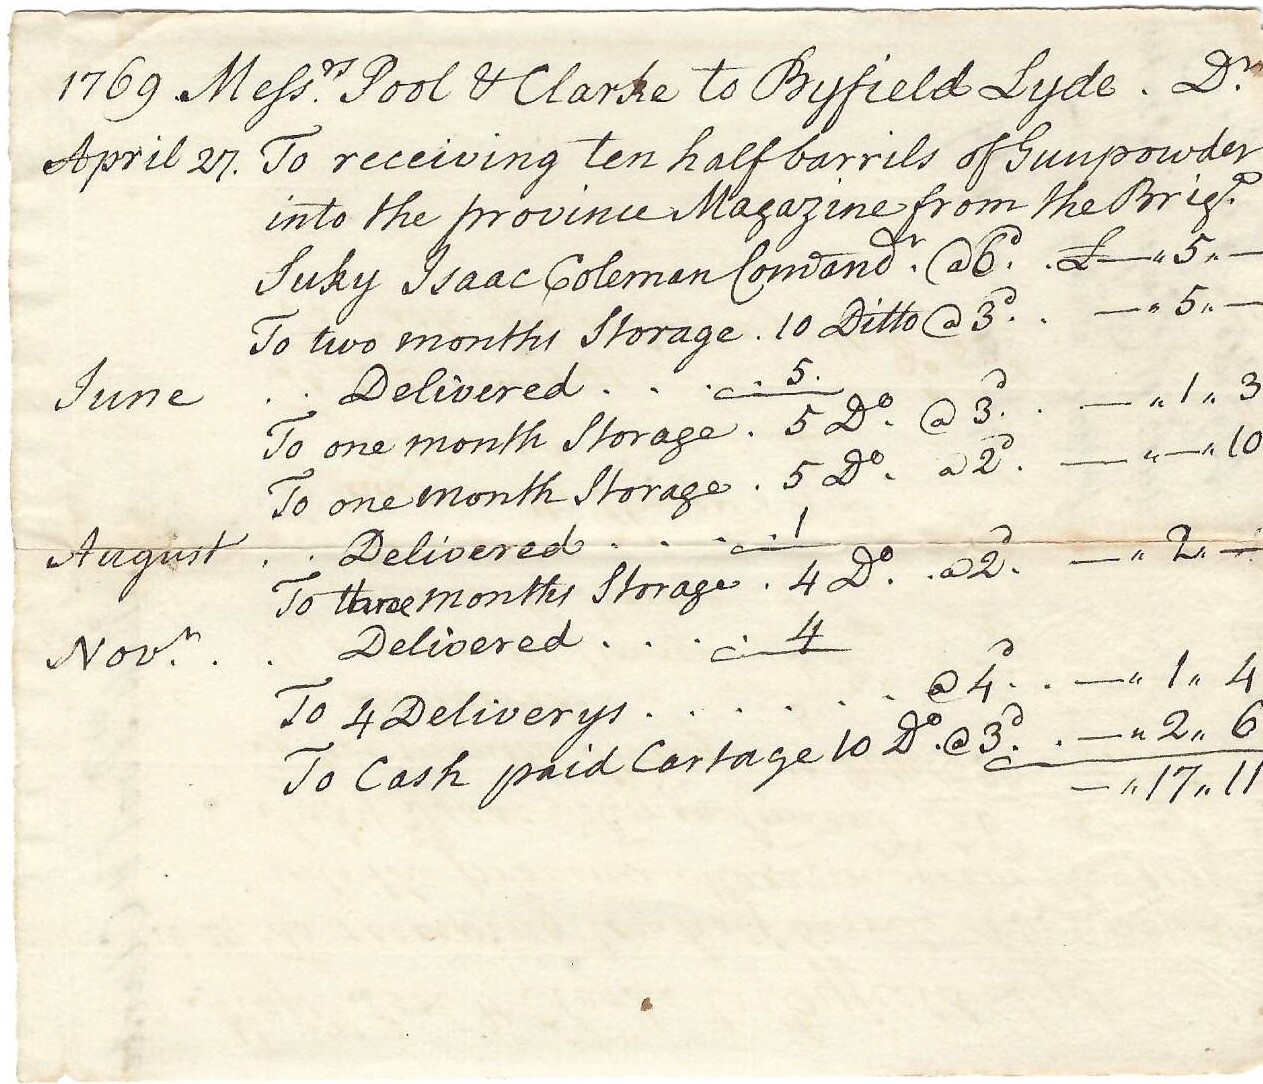 1769 Messrs. Pool & Clarke to Byfield Lyde. Dr.
April 27. To receiving ten half barrils of Gunpowder
into the province Magazine from the Brigd.
Suky Isaac Coleman Comandr. @ 6d. . £—"5"—
To two months Storage . 10 Ditto @ 3d. . —"5"—
June . . Delivered . . . . 5.
To one month Storage . 5 Do. @ 3d. . —"1"3
To one month Storage . 5 Do. @ 2d. —"—"10
August . . Delivered . . . . 1
To three months Storage . 4 Do. . @ 2d. —"2"—
Novr. . . Delivered . . . . 4
To 4 Deliverys . . . . . . @ 4d. . —"1"4
To Cash paid Cartage 10 Do. @ 3d. . —"2"6
—"17"11